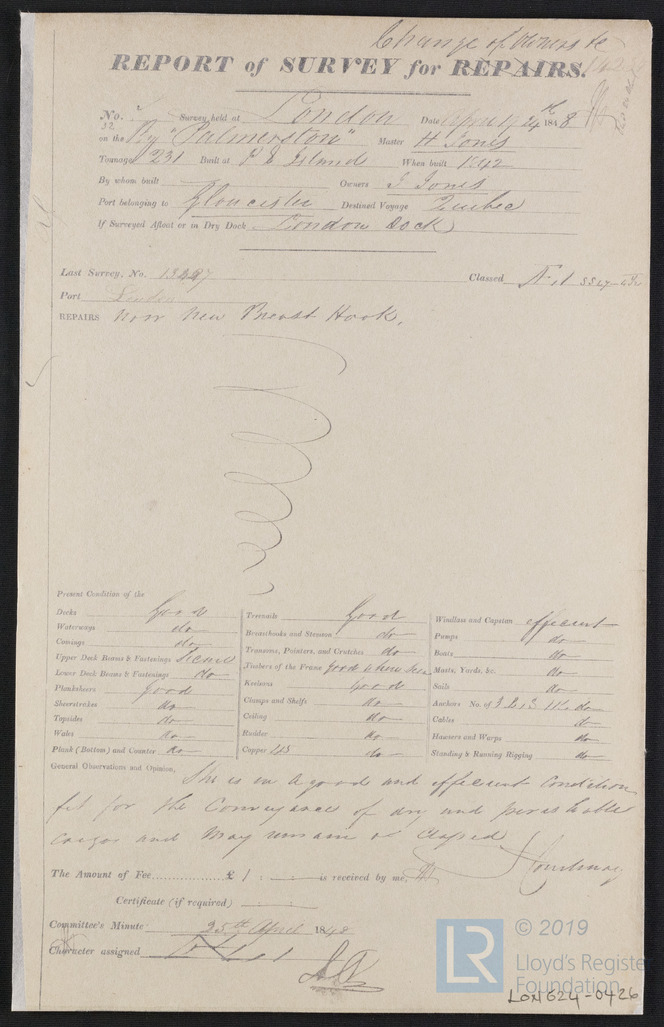 Change of Owners &c
REPORT of SURVEY for REPAIRS.
No. Survey held at London Date April 24th 1848
52
on the Brg "Palmerston" Master H Jones
Tonnage 231 Built at P E Islands When built 1842
By whom built Owners J Jones
Port belonging to Gloucester Destined Voyage Quebec
If Surveyed Afloat or in Dry Dock London Dock
Last Survey, No. Classed A 1
Port London
REPAIRS Now New Breast Hook.
Present Condition of the
Decks Good
Waterways do
Comings do
Upper Deck Beams & Fastenings Seems
Lower Deck Beams & Fastenings do
Planksheers Good
Sheerstrakes do
Topsides do
Wales do
Plank (Bottom) and Counter do
Treenails Good
Breasthooks and Stemson do
Transoms, Pointers, and Crutches do
Timbers of the Frame Good where seen
Keelsons Good
Clamps and Shelfs do
Ceiling do
Rudder do
Copper do
Windlass and Capstan efficient
Pumps do
Boats do
Masts, Yards, &c. do
Sails do
Anchors No. of do
Cables do
Hawsers and Warps do
Standing & Running Rigging do
General Observations and Opinion, She is in a good and efficient Condition
fit for the Conveyance of dry and perishable
cargos and may remain as Classed
The Amount of Fee £ 1 : : is received by me,
Certificate (if required) : :
Committee's Minute 25th April 1848
Character assigned
© 2019
LR
Lloyd's Register
Foundation
LON624-0426